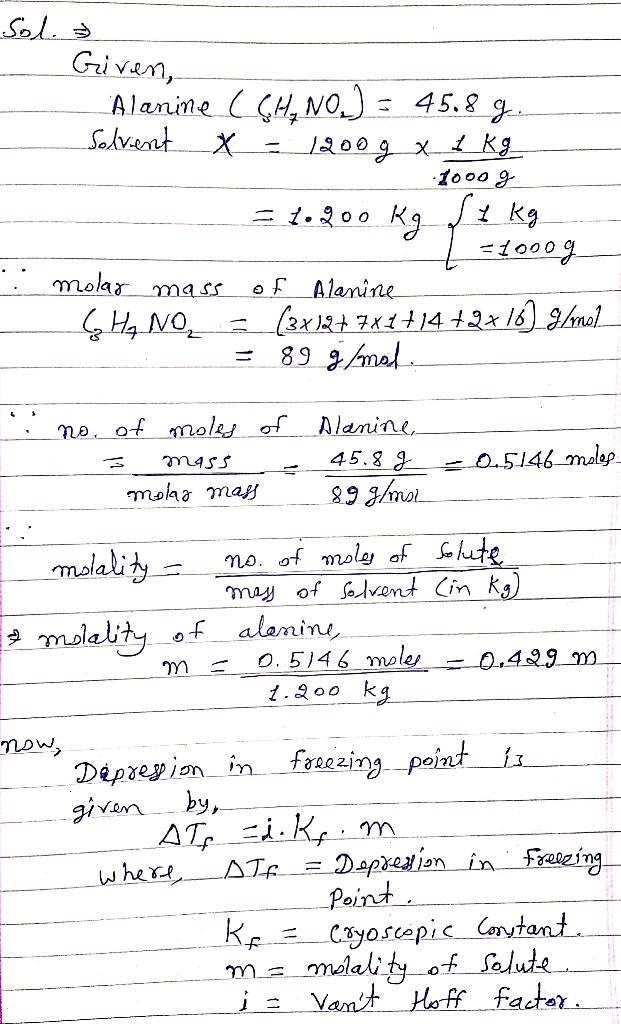 Sol. ⇒
Given,
Alanine (C₃H₇NO₂) = 45.8 g.
Solvent X = 1200 g × 1 Kg / 1000 g
= 1.200 Kg { 1 Kg = 1000 g
∵ molar mass of Alanine
C₃H₇NO₂ = (3×12+7×1+14+2×16) g/mol
= 89 g/mol.
∵ no. of moles of Alanine,
= mass / molar mass = 45.8 g / 89 g/mol = 0.5146 moles
∵ molality = no. of moles of Solute / mass of Solvent (in Kg)
⇒ molality of alanine,
m = 0.5146 moles / 1.200 kg = 0.429 m
now,
Depression in freezing point is
given by,
ΔT_f = i. K_f . m
where, ΔT_f = Depression in Freezing
Point.
K_f = Cryoscopic Constant.
m = molality of Solute.
i = Van't Hoff factor.